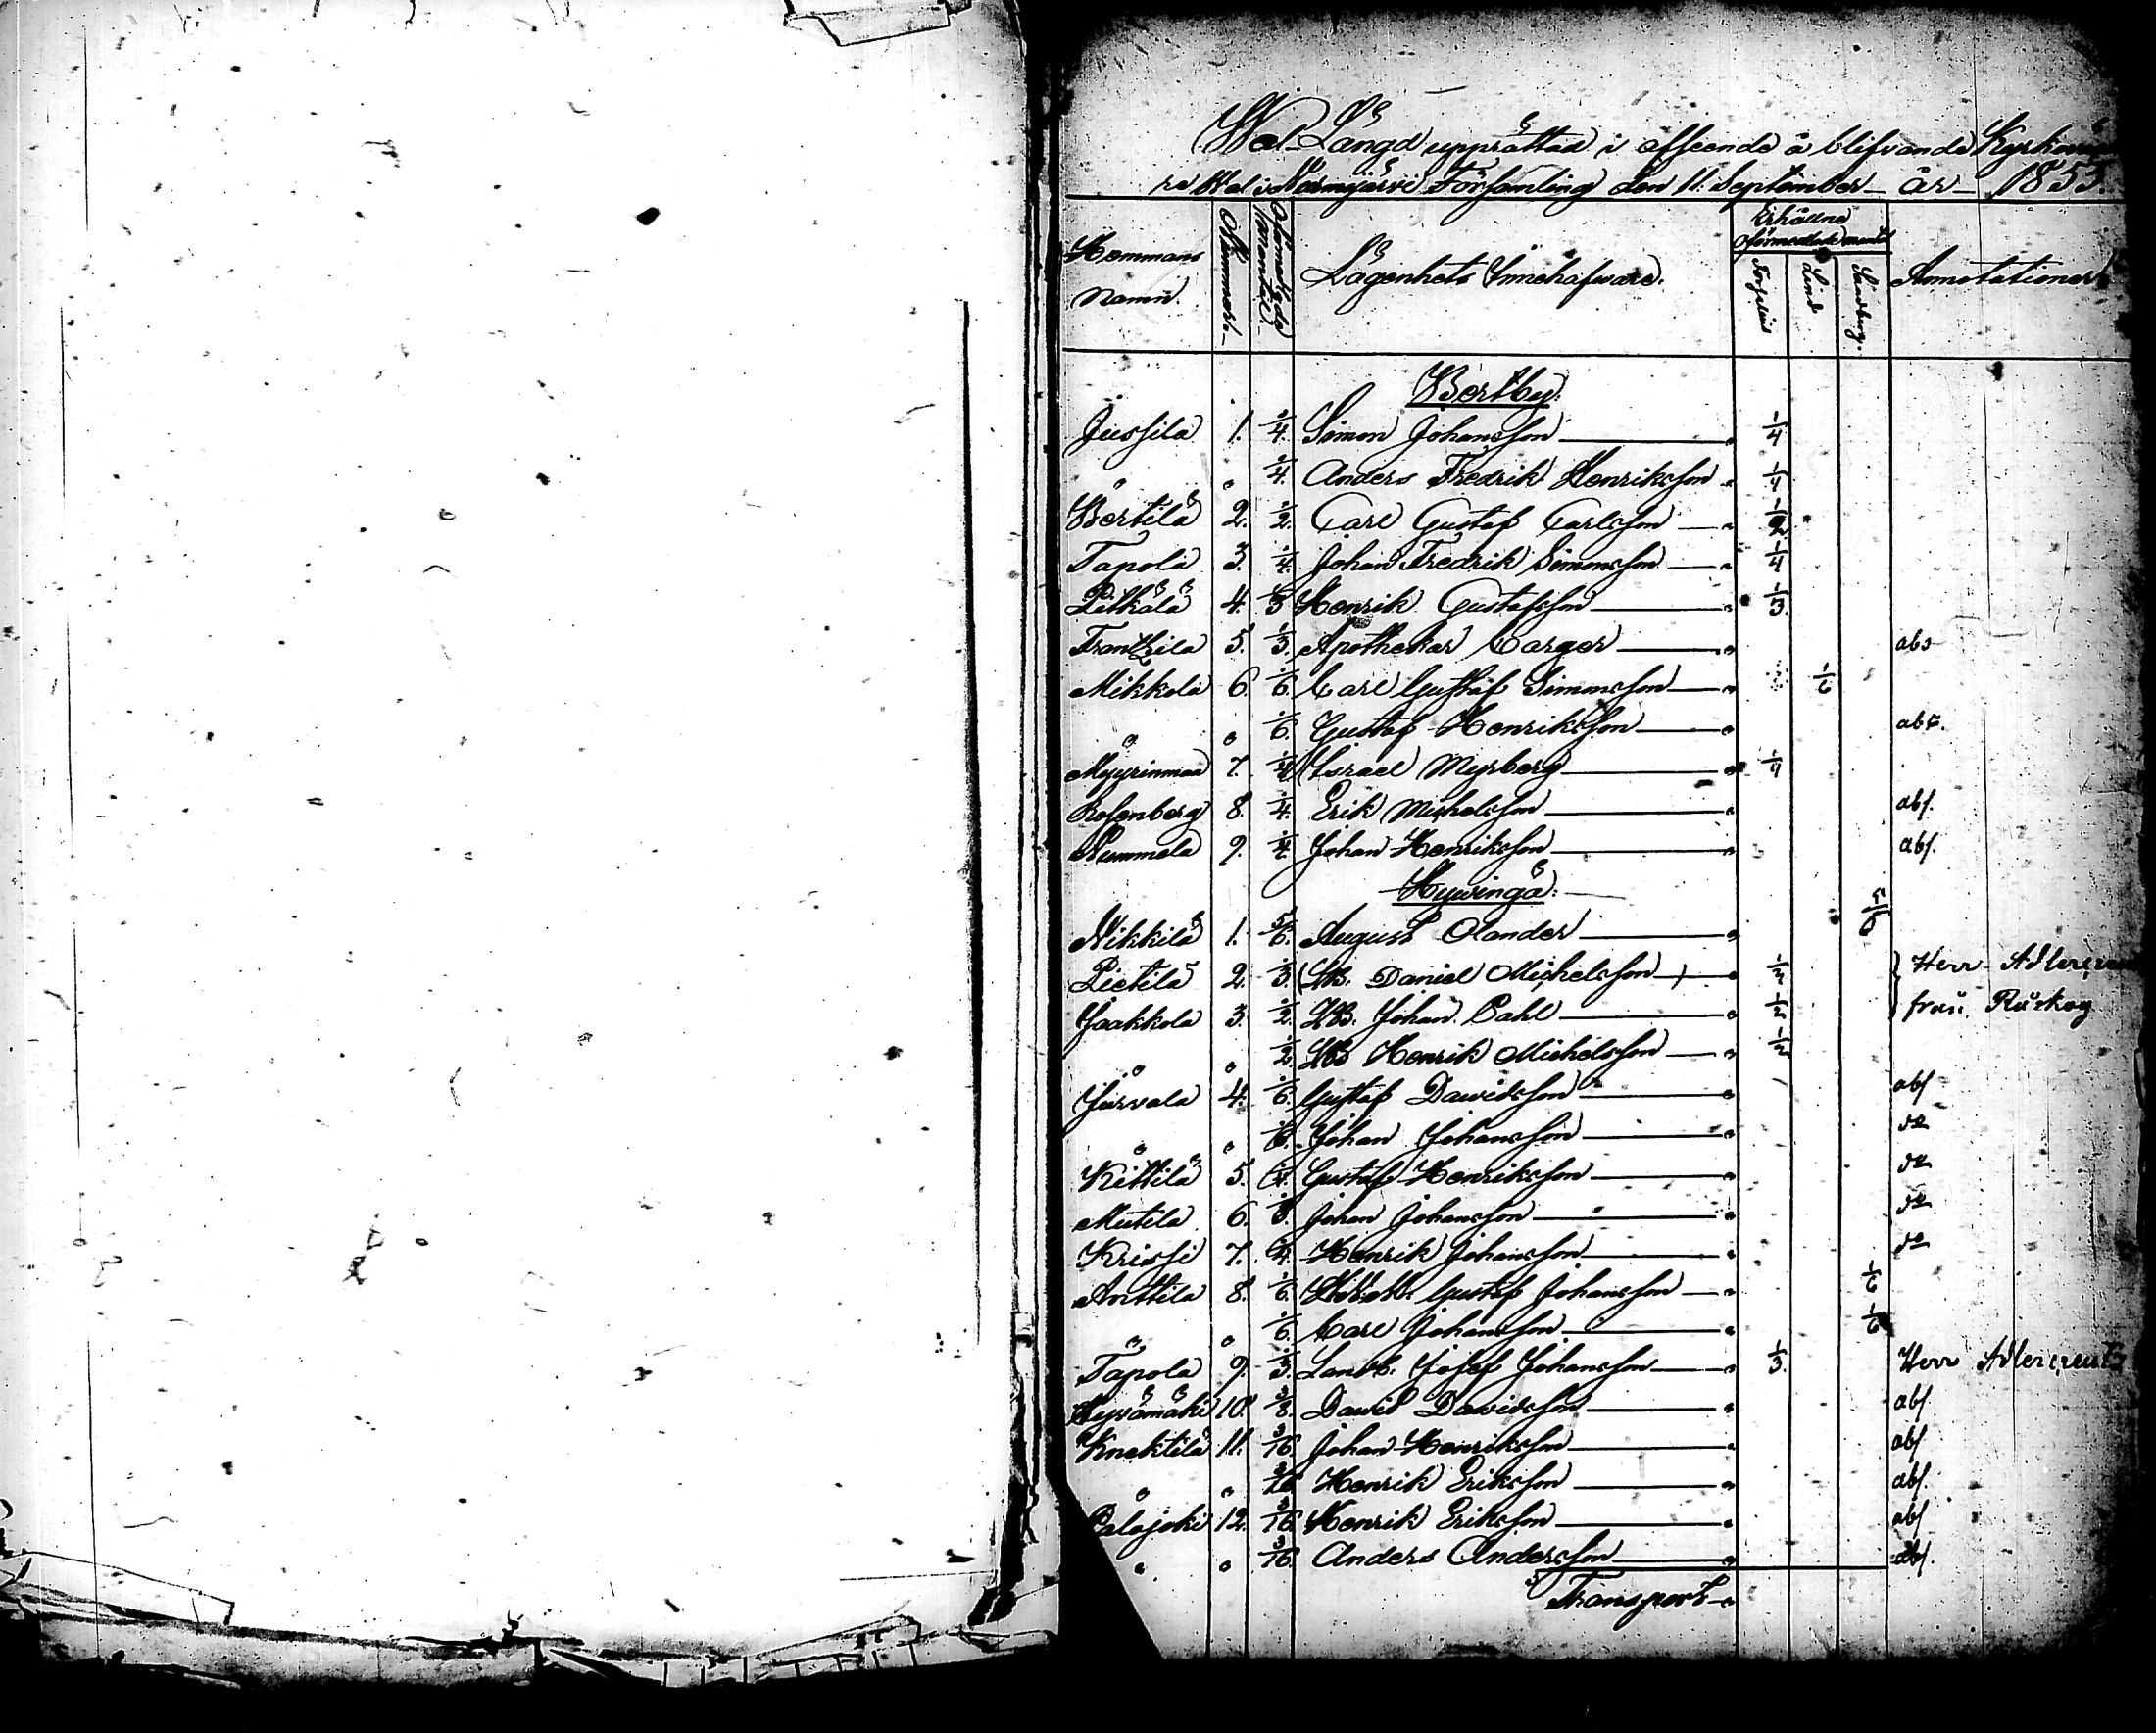 Wal-Längd upprättad i afseende å blifvande
re Wal i Nurmijärvi Församling den 11. September - år - 1853.
Hemmans Namn. Nummer. Mantal. Lägenhets Innehafware. Erhållne Lind Sandberg. Annotationer
Bertby:
Jussila 1. 1/4. Simon Johansson 1/4
" " 1/4. Anders Fredrik Henriksson 1/4
Bertilä 2. 1/2. Carl Gustaf Carlsson 1/2
Tapola 3. 1/4. Johan Fredrik Simonsson 1/4
Pitkälä 4. 1/3 Henrik Gustafsson 1/3.
Frantzila 5. 1/3. Apothekar abs
Mikkola 6. 1/6. Carl Gustaf Simonsson 1/6
" " 1/6. Gustaf Henriksson abs.
Myyrinmaa 7. 1/4 Israel Myrberg 1/4
Rosenberg 8. 1/4. Erik Michelsson abs.
Nummela 9. 1/4 Johan Henriksson abs.
Hywingä:
Nikkilä 1. 5/6. August Olander 5/6
Pietilä 2. 1/3. LB. Daniel Michelsson 1/3 } Herr
Jaakkola 3. 1/2. LB. Johan Dahl 1/2 från
" " 1/2 LB Henrik Michelsson 1/2
Jurvala 4. 1/6. Gustaf Dawidsson abs
" " 1/6. Johan Johansson do
Kittilä 5. 1/4. Gustaf Henriksson do
Mutila 6. Johan Johansson do
Krissi 7. 1/4. Henrik Johansson do
Anttila 8. 1/6. Gustaf Johansson 1/6
" " 1/6. Carl Johansson 1/6
Tapola 9. 1/3. Lantb. Josef Johansson 1/3. Herr Adlercreutz
10. 3/8. Dawid Dawidsson abs
Knektilä 11. 3/16 Johan Henriksson abs
" " 3/16 Henrik Eriksson abs.
Palojoki 12. 3/16 Henrik Eriksson abs
" " 3/16 Anders Andersson abs.
Transport